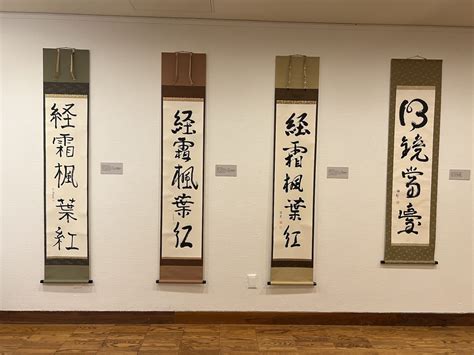 経霜楓葉紅
経霜楓葉紅
経霜楓葉紅
明鏡當臺